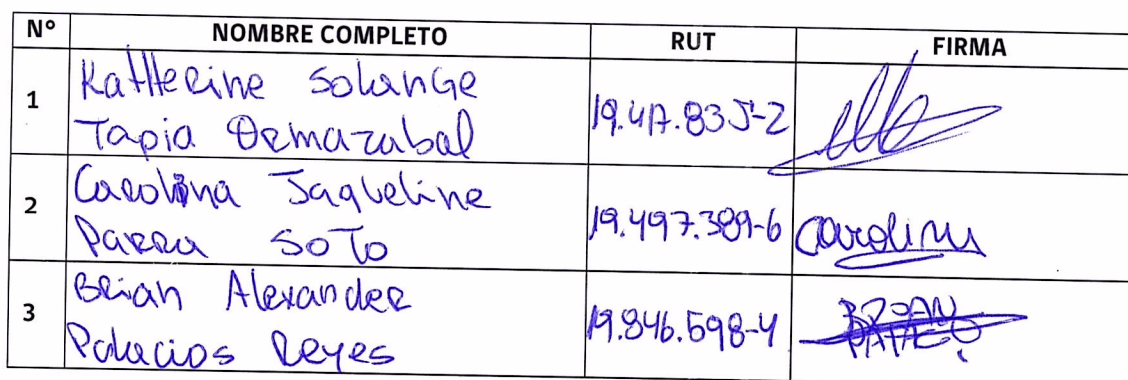 N° NOMBRE COMPLETO RUT FIRMA
1 Katherine Solange
Tapia Ormazabal
2 Carolina Jaqueline
Parra Soto 19.497.389-6 Carolina
3 Brian Alexander
Palacios Reyes 19.846.598-4